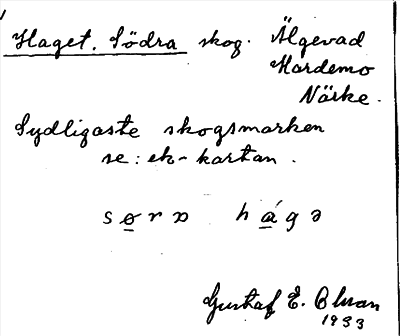 Haget. Södra skog. Älgevad
Hardemo
Närke.
Sydligaste skogsmarken
se: ek-kartan.
sørɒ hágə
Gustaf E. Olsson
1933